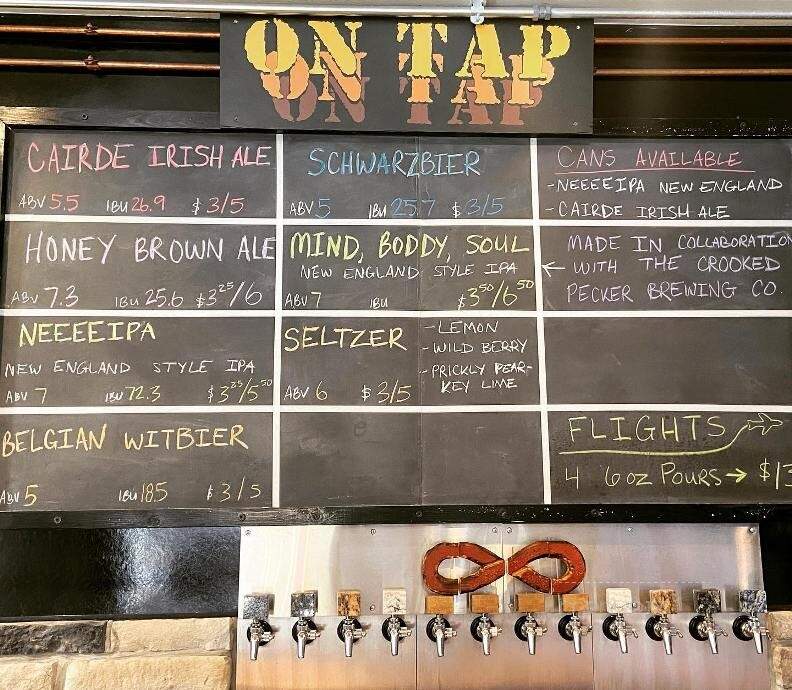 ON TAP
CAIRDE IRISH ALE
ABV 5.5 IBU 26.9 $3/5
HONEY BROWN ALE
ABV 7.3 IBU 25.6 $3²⁵/6
NEEEEIPA
NEW ENGLAND STYLE IPA
ABV 7 IBU 72.3 $3²⁵/5⁵⁰
BELGIAN WITBIER
ABV 5 IBU 18.5 $3/5
SCHWARZBIER
ABV 5 IBU 25.7 $3/5
MIND, BODDY, SOUL
NEW ENGLAND STYLE IPA
ABV 7 IBU $3⁵⁰/6⁵⁰
SELTZER
-LEMON
-WILD BERRY
-PRICKLY PEAR-
KEY LIME
ABV 6 $3/5
CANS AVAILABLE
-NEEEEIPA NEW ENGLAND
-CAIRDE IRISH ALE
MADE IN COLLABORATION
← WITH THE CROOKED
PECKER BREWING CO.
FLIGHTS
4 6oz POURS → $13